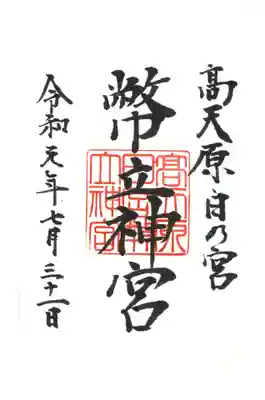 高天原 日の宮
幣立神宮
令和元年七月三十一日